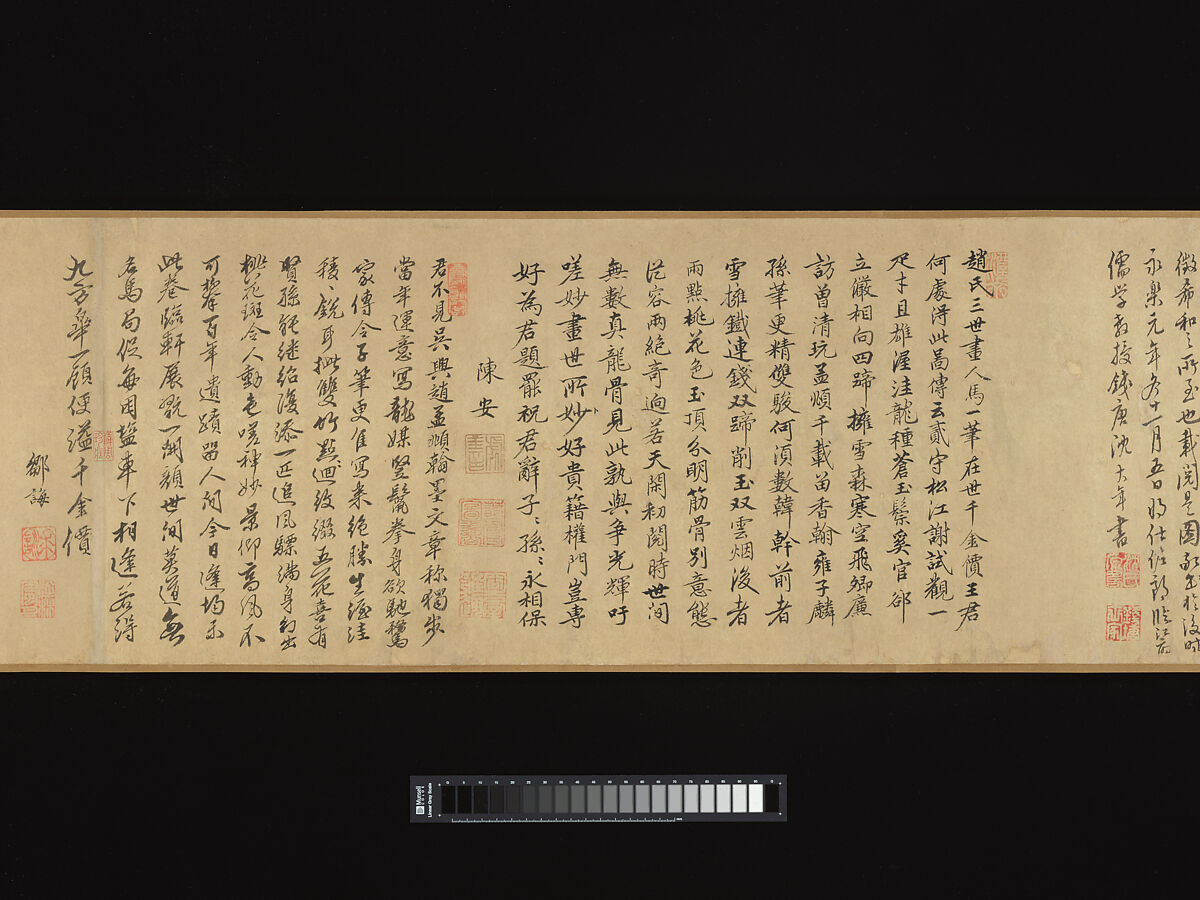 徵希和之所至也載閱是圖敬書於後時
永樂元年冬十一月五日將仕佐郎臨江府
儒學教授錢唐沈大年書
趙氏三世畫人馬一筆在世千金價王君
何處淂此啚傳云貳守松江謝試觀一
尺才且雄渥洼龍種蒼玉鬃奚官郤
立嚴相向四蹄擁雪森寒空飛卿廉
訪曾清玩孟頫千載苗香翰雍子麟
孫筆更精雙駿何湏數韓幹前者
雪擁鐵連錢双蹄削玉双雲烟後者
兩點桃花色玉頂分明筋骨別意態
從容兩絕奇逈若天閑初閱時世间
無數真龍骨見此孰與争光輝吁
嗟妙畫世所妙好貴籍權門豈専
好為君題罷祝君辭子〻孫〻永相保
陳安
君不見吳興趙孟頫翰墨文章称獨步
當年運意寫龍媒竪鬣拳身欲馳騖
家傳令子筆更佳寫来絶勝生渥洼
稜〻銳耳批雙竹點〻廻紋綴五花喜有
賢孫能継紹復添一匹追風驃滿身初出
桃花斑令人動色嗟神妙景仰髙風不
可攀百年遺蹟留人间今日逢均示
此卷臨軒展翫一開顔世间莫道無
名馬局促每困鹽車下相逢若得
九方臯一顧便溢千金價
鄒誨